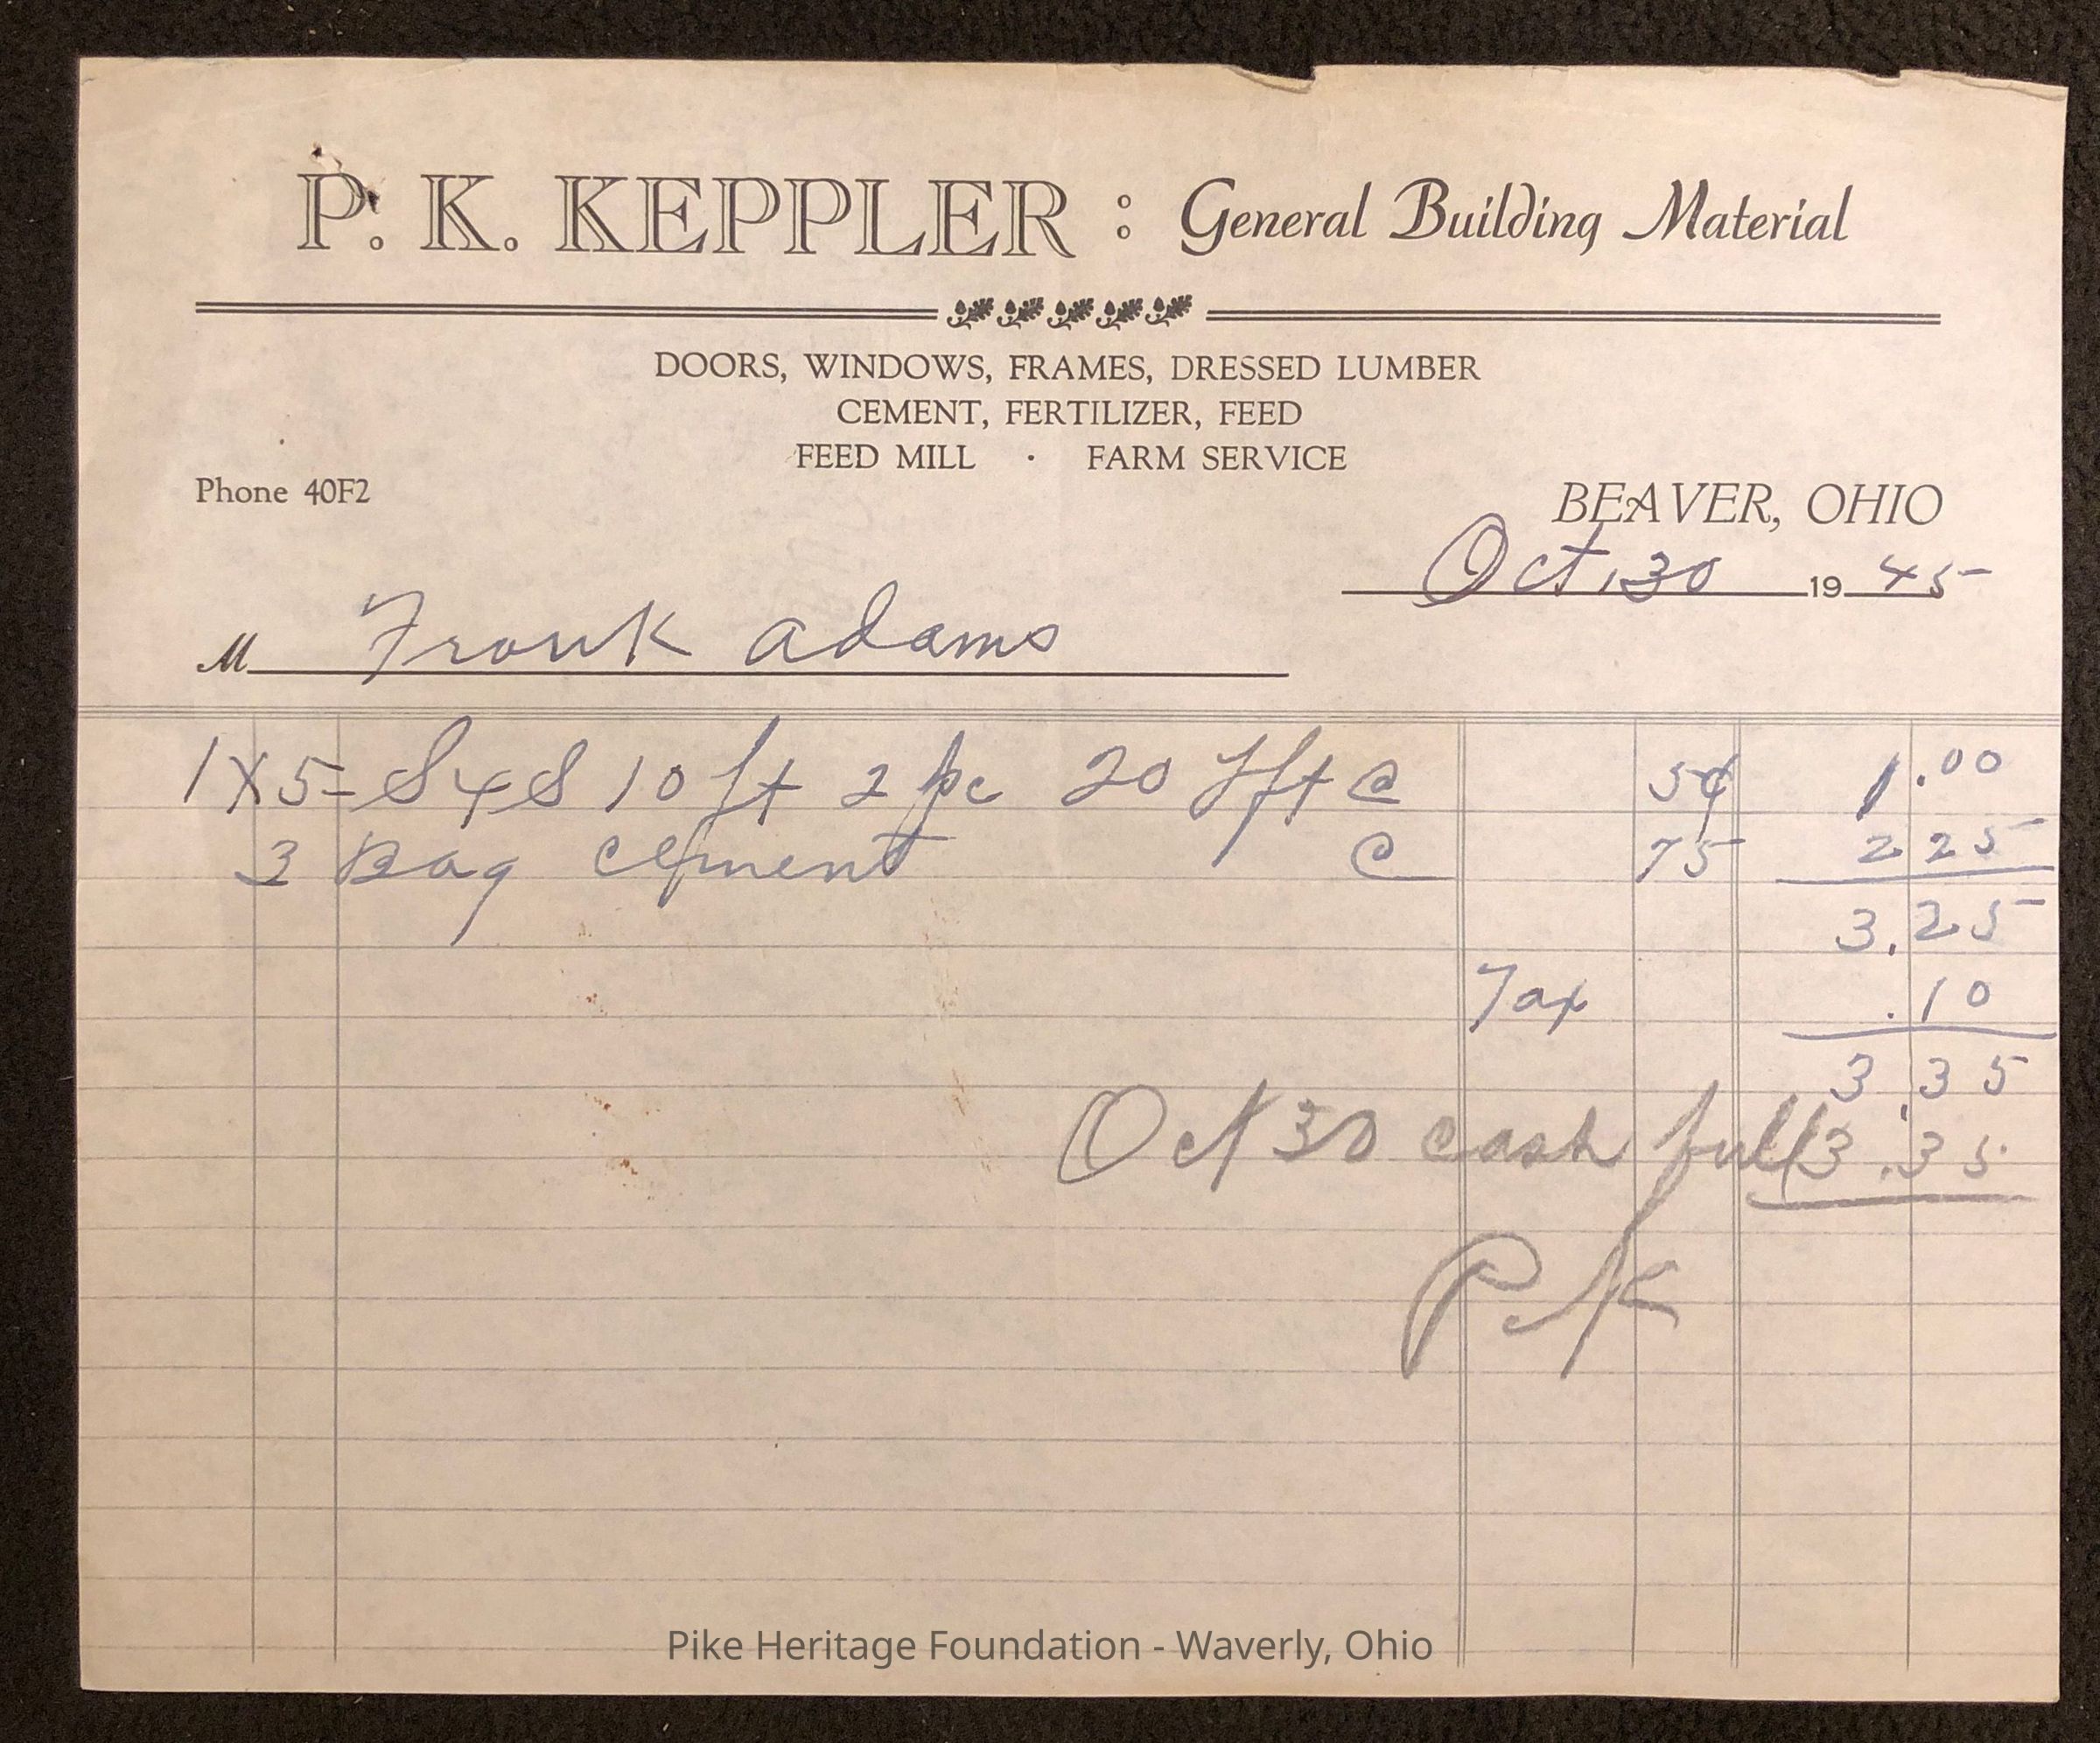 P. K. KEPPLER : General Building Material
DOORS, WINDOWS, FRAMES, DRESSED LUMBER
CEMENT, FERTILIZER, FEED
FEED MILL · FARM SERVICE
Phone 40F2
BEAVER, OHIO
Oct, 30 19 45
M Frank Adams
1X5- S4S 10 ft 2 pc 20 Lft @ 5¢ 1.00
3 Bag Cement @ 75 2 25
3.25
Tax .10
3.35
Oct 30 cash full 3.35
P.K
Pike Heritage Foundation - Waverly, Ohio